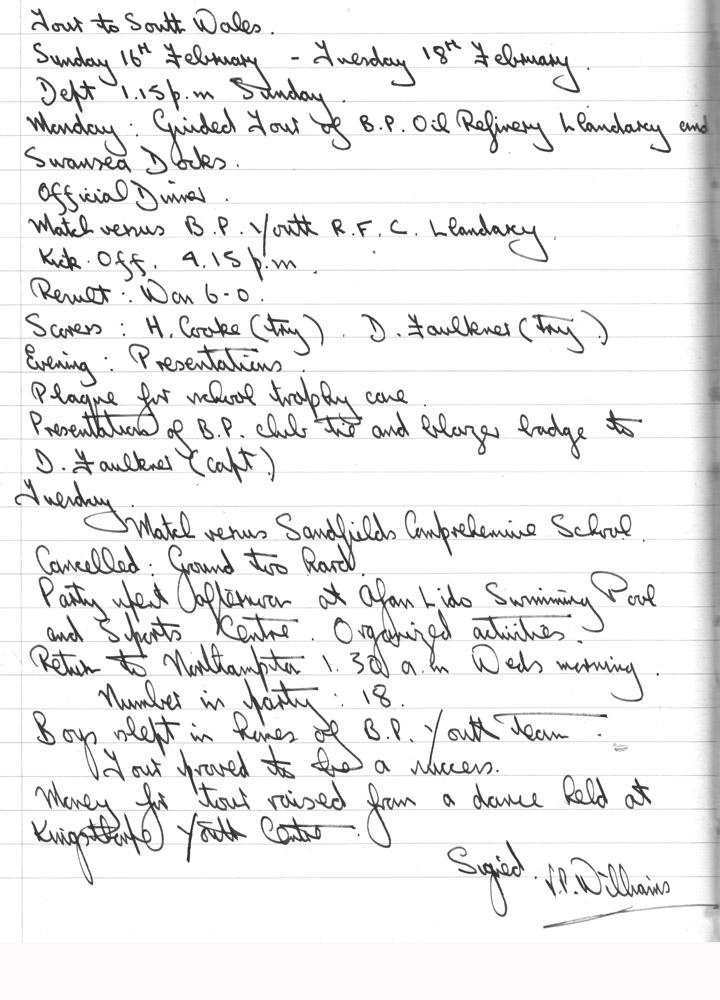 Tour to South Wales.
Sunday 16th February - Tuesday 18th February.
Dept 1.15 p.m Sunday.
Monday: Guided Tour of B.P. Oil Refinery Llandarcy and
Swansea Docks.
Official Dinner.
Match versus B.P. Youth R.F.C. Llandarcy.
Kick Off. 4.15 p.m.
Result: Won 6-0.
Scorers: H. Cooke (try). D. Faulkner (try)
Evening: Presentations.
Plaque for school trophy case.
Presentation of B.P. club tie and blazer badge to
D. Faulkner (capt)
Tuesday.
Match versus Sandfields Comprehensive School.
Cancelled: Ground too hard.
Party spent afternoon at Afan Lido Swimming Pool
and Sports Centre. Organized activities.
Return to Northampton 1.30 a.m Weds morning.
Number in party: 18.
Boys slept in homes of B.P. Youth Team.
Tour proved to be a success.
Money for tour raised from a dance held at
Kingsthorpe Youth Centre.
Signed. J.P. Williams